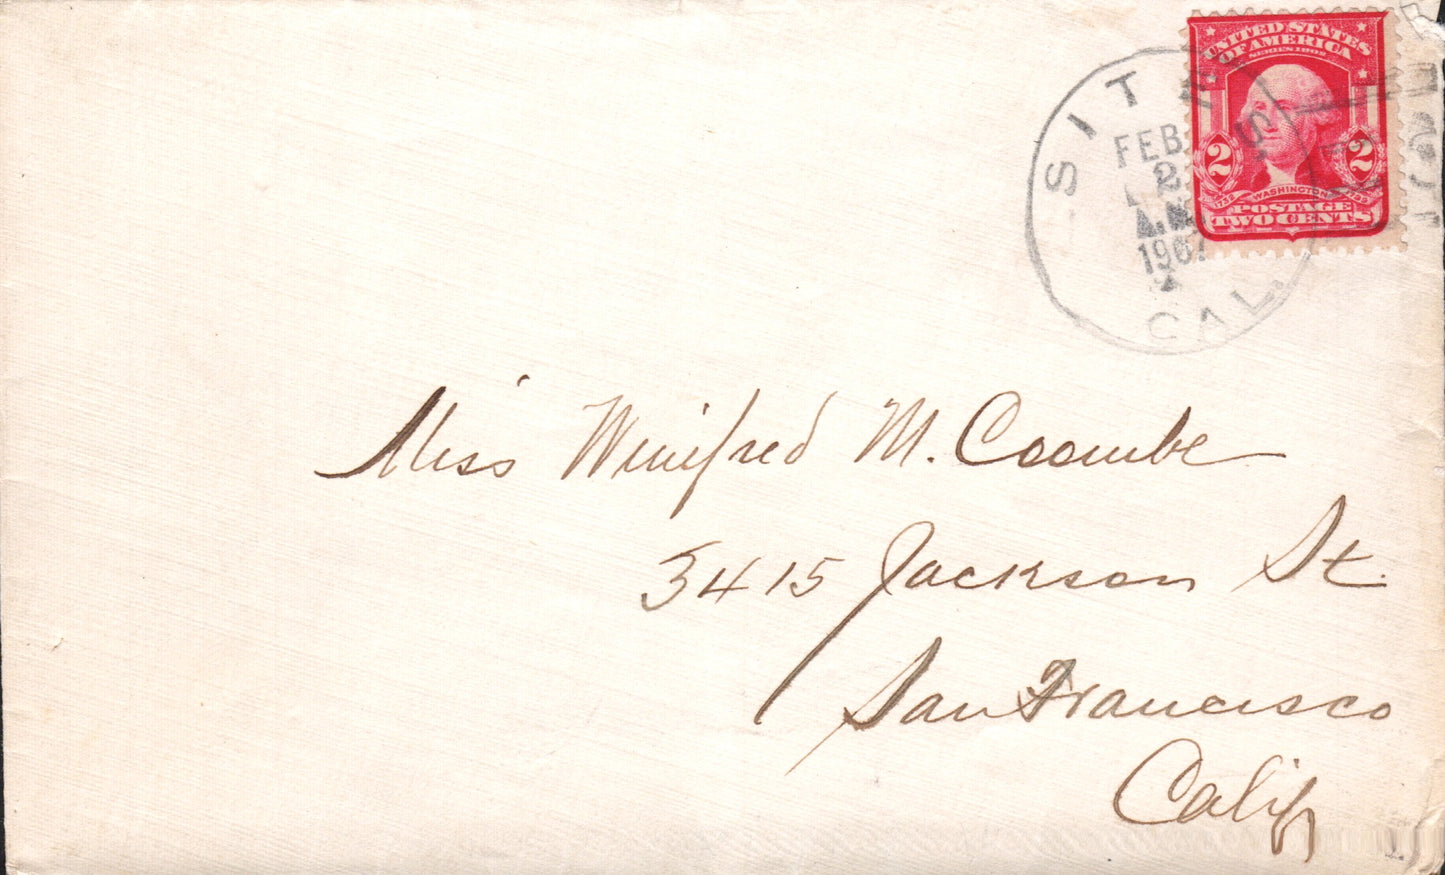 UNITED STATES
OF AMERICA
SERIES 1902
2 2
1732 WASHINGTON 1799
POSTAGE
TWO CENTS
SIT
FEB
2
A.M.
1907
CAL.
Miss Winifred M. Coombe
3415 Jackson St.
San Francisco
Calif